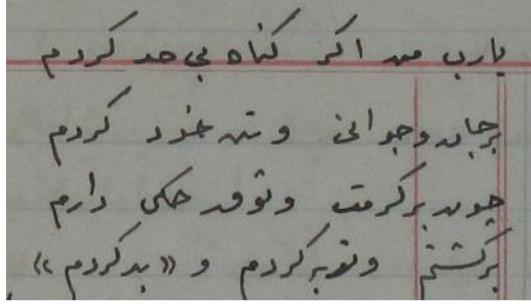 یارب من اگر گناه بی حد کردم
برجان و جوانی و تن خود کردم
چون بر کرمت وثوق کلی دارم
برگشتم و توبه کردم و «بد کردم»